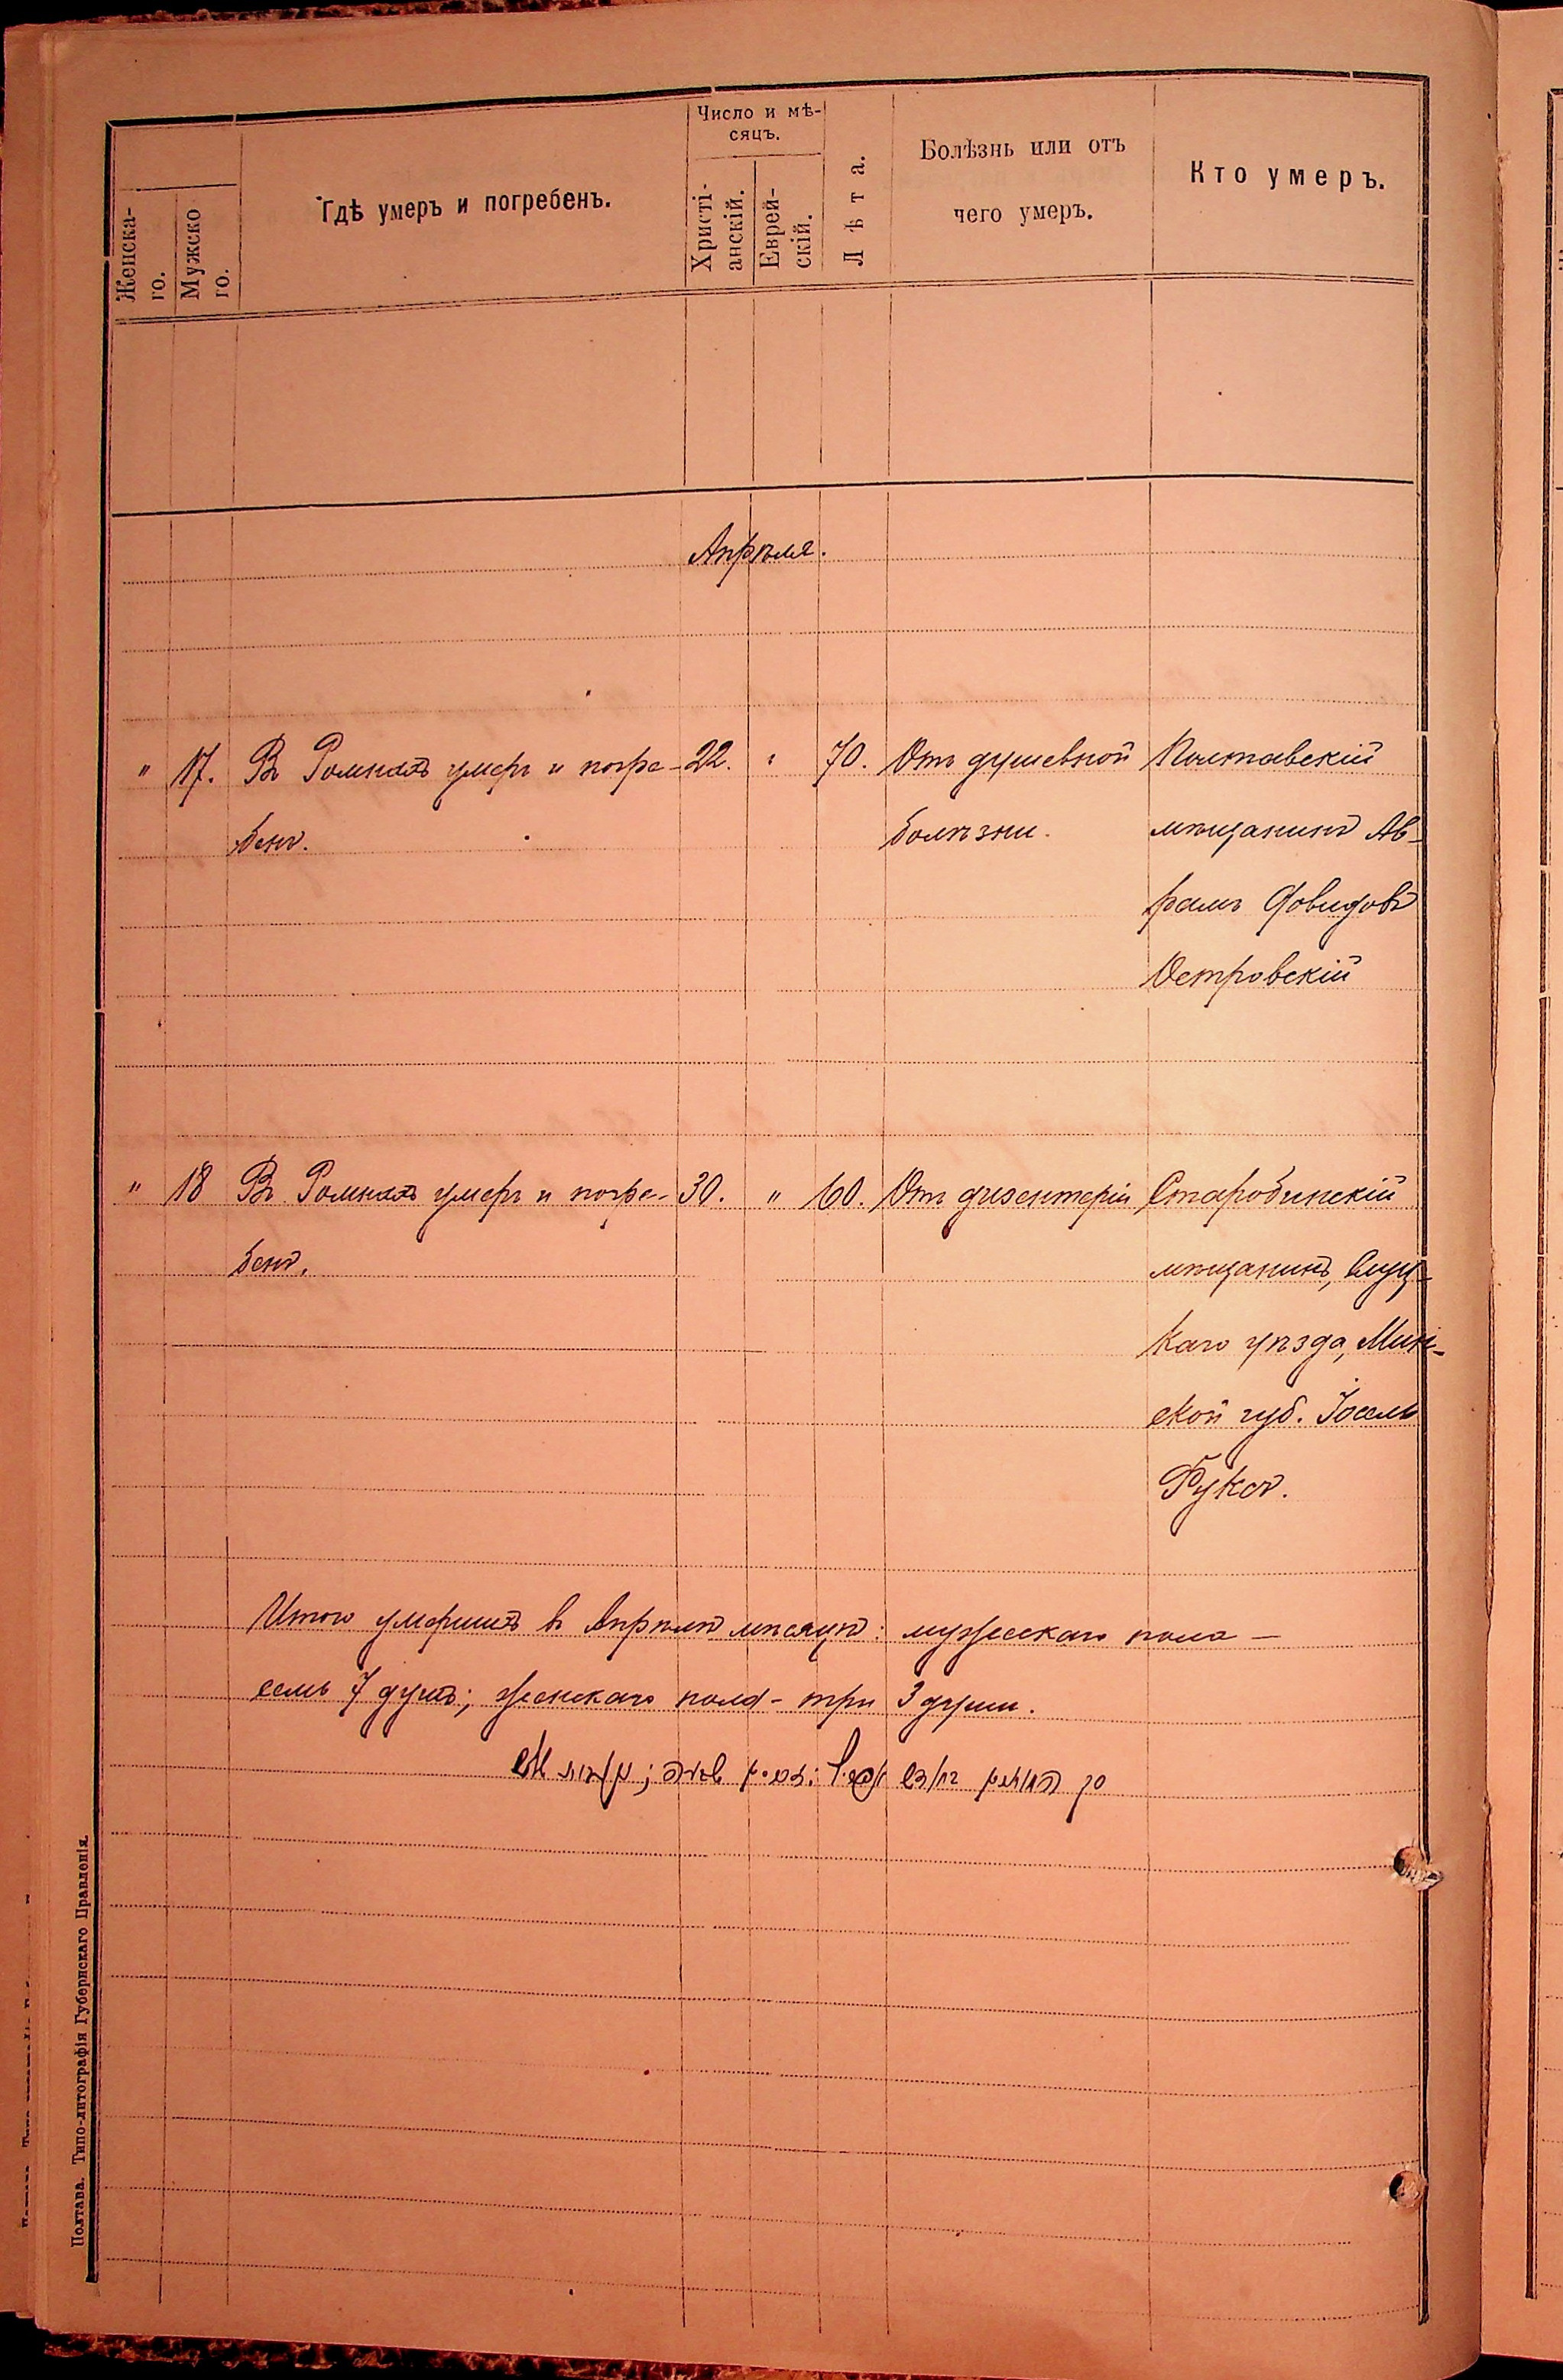 Женска-
го.
Мужско
го.
Гдѣ умеръ и погребенъ.
Число и мѣ-
сяцъ.
Христі-
анскій.
Еврей-
скій.
Лѣта.
Болѣзнь или отъ
чего умеръ.
Кто умеръ.
Апрѣля.
" 17. Въ Ромнахъ умеръ и погре- 22. " 70. Отъ душевной Полтавскій
бенъ. болѣзни. мѣщанинъ Ав-
рамъ Довидовъ
Островскій
" 18 Въ Ромнахъ умеръ и погре- 30. " 60. Отъ дизентеріи Старобинскій
бенъ. мѣщанинъ, Слуц-
каго уѣзда, Мин-
ской губ. Іосель
Фуксъ.
Итого умершихъ въ Апрѣлѣ мѣсяцѣ: мужескаго пола —
семь 7 душъ; женскаго пола - три 3 души.
Полтава. Типо-литографія Губернскаго Правленія.